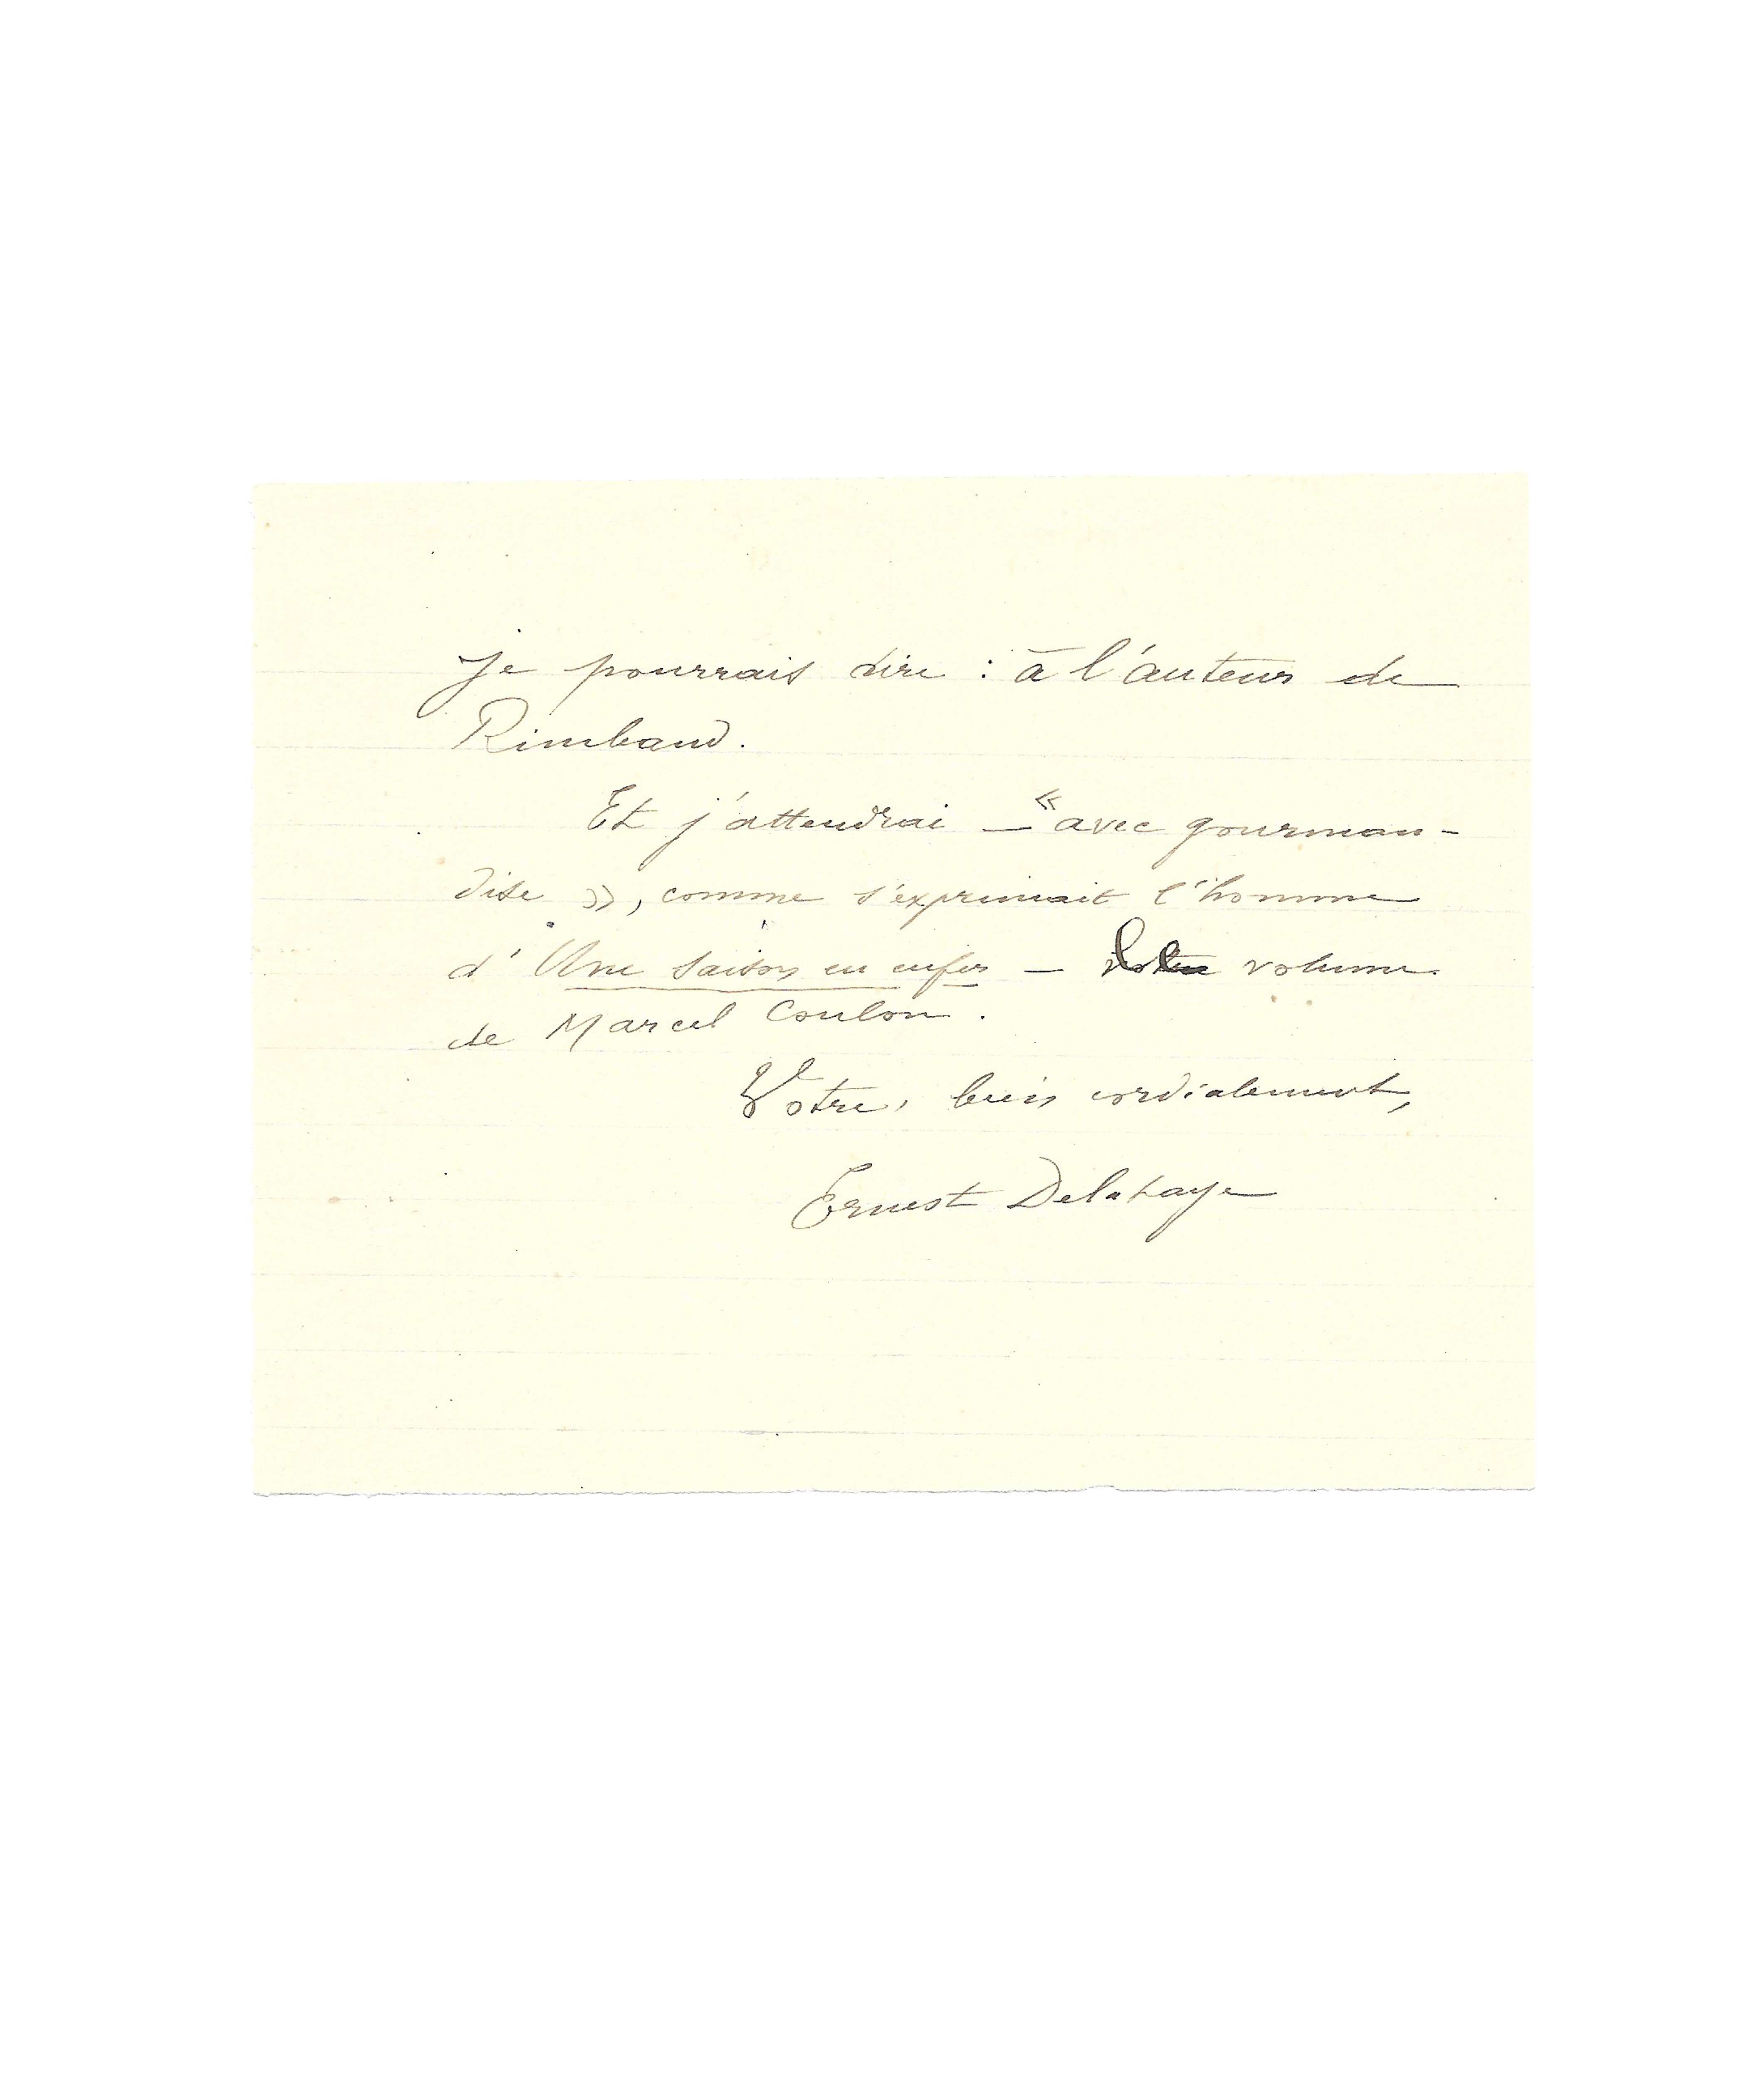 Je pourrais dire : à l'auteur de
Rimbaud.
Et j'attendrai — « avec gourman-
dise », comme s'exprimait l'homme
d'Une saison en enfer — le volume
de Marcel Coulon.
Votre, bien cordialement,
Ernest Delahaye